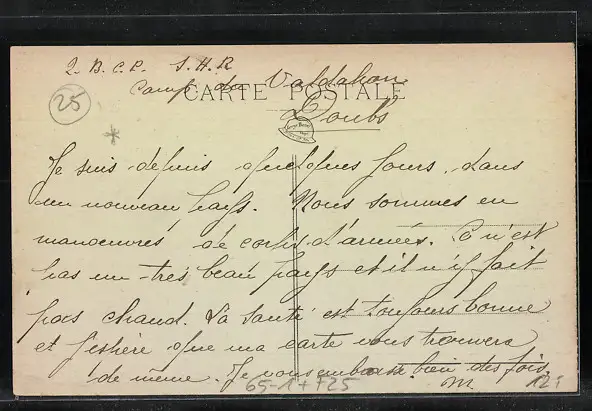 2. B. C. P. S. H. R
Camp du Valdahon
CARTE POSTALE
Doubs
25
Je suis depuis quelques jours, dans
un nouveau pays. Nous sommes en
manoeuvres de corps d'armées. Ce n'est
pas un très beau pays et il n'y fait
pas chaud. La santé est toujours bonne
et j'espère que ma carte vous trouvera
de même. Je vous embrasse bien des fois.
65-1+725
M.
12F